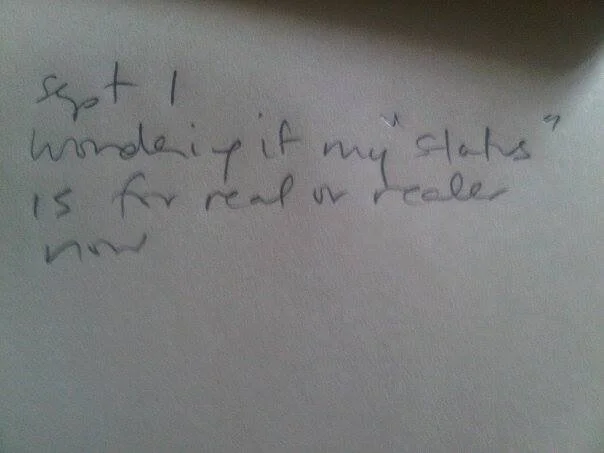 Sept 1
wondering if my "status"
is for real or realer
now